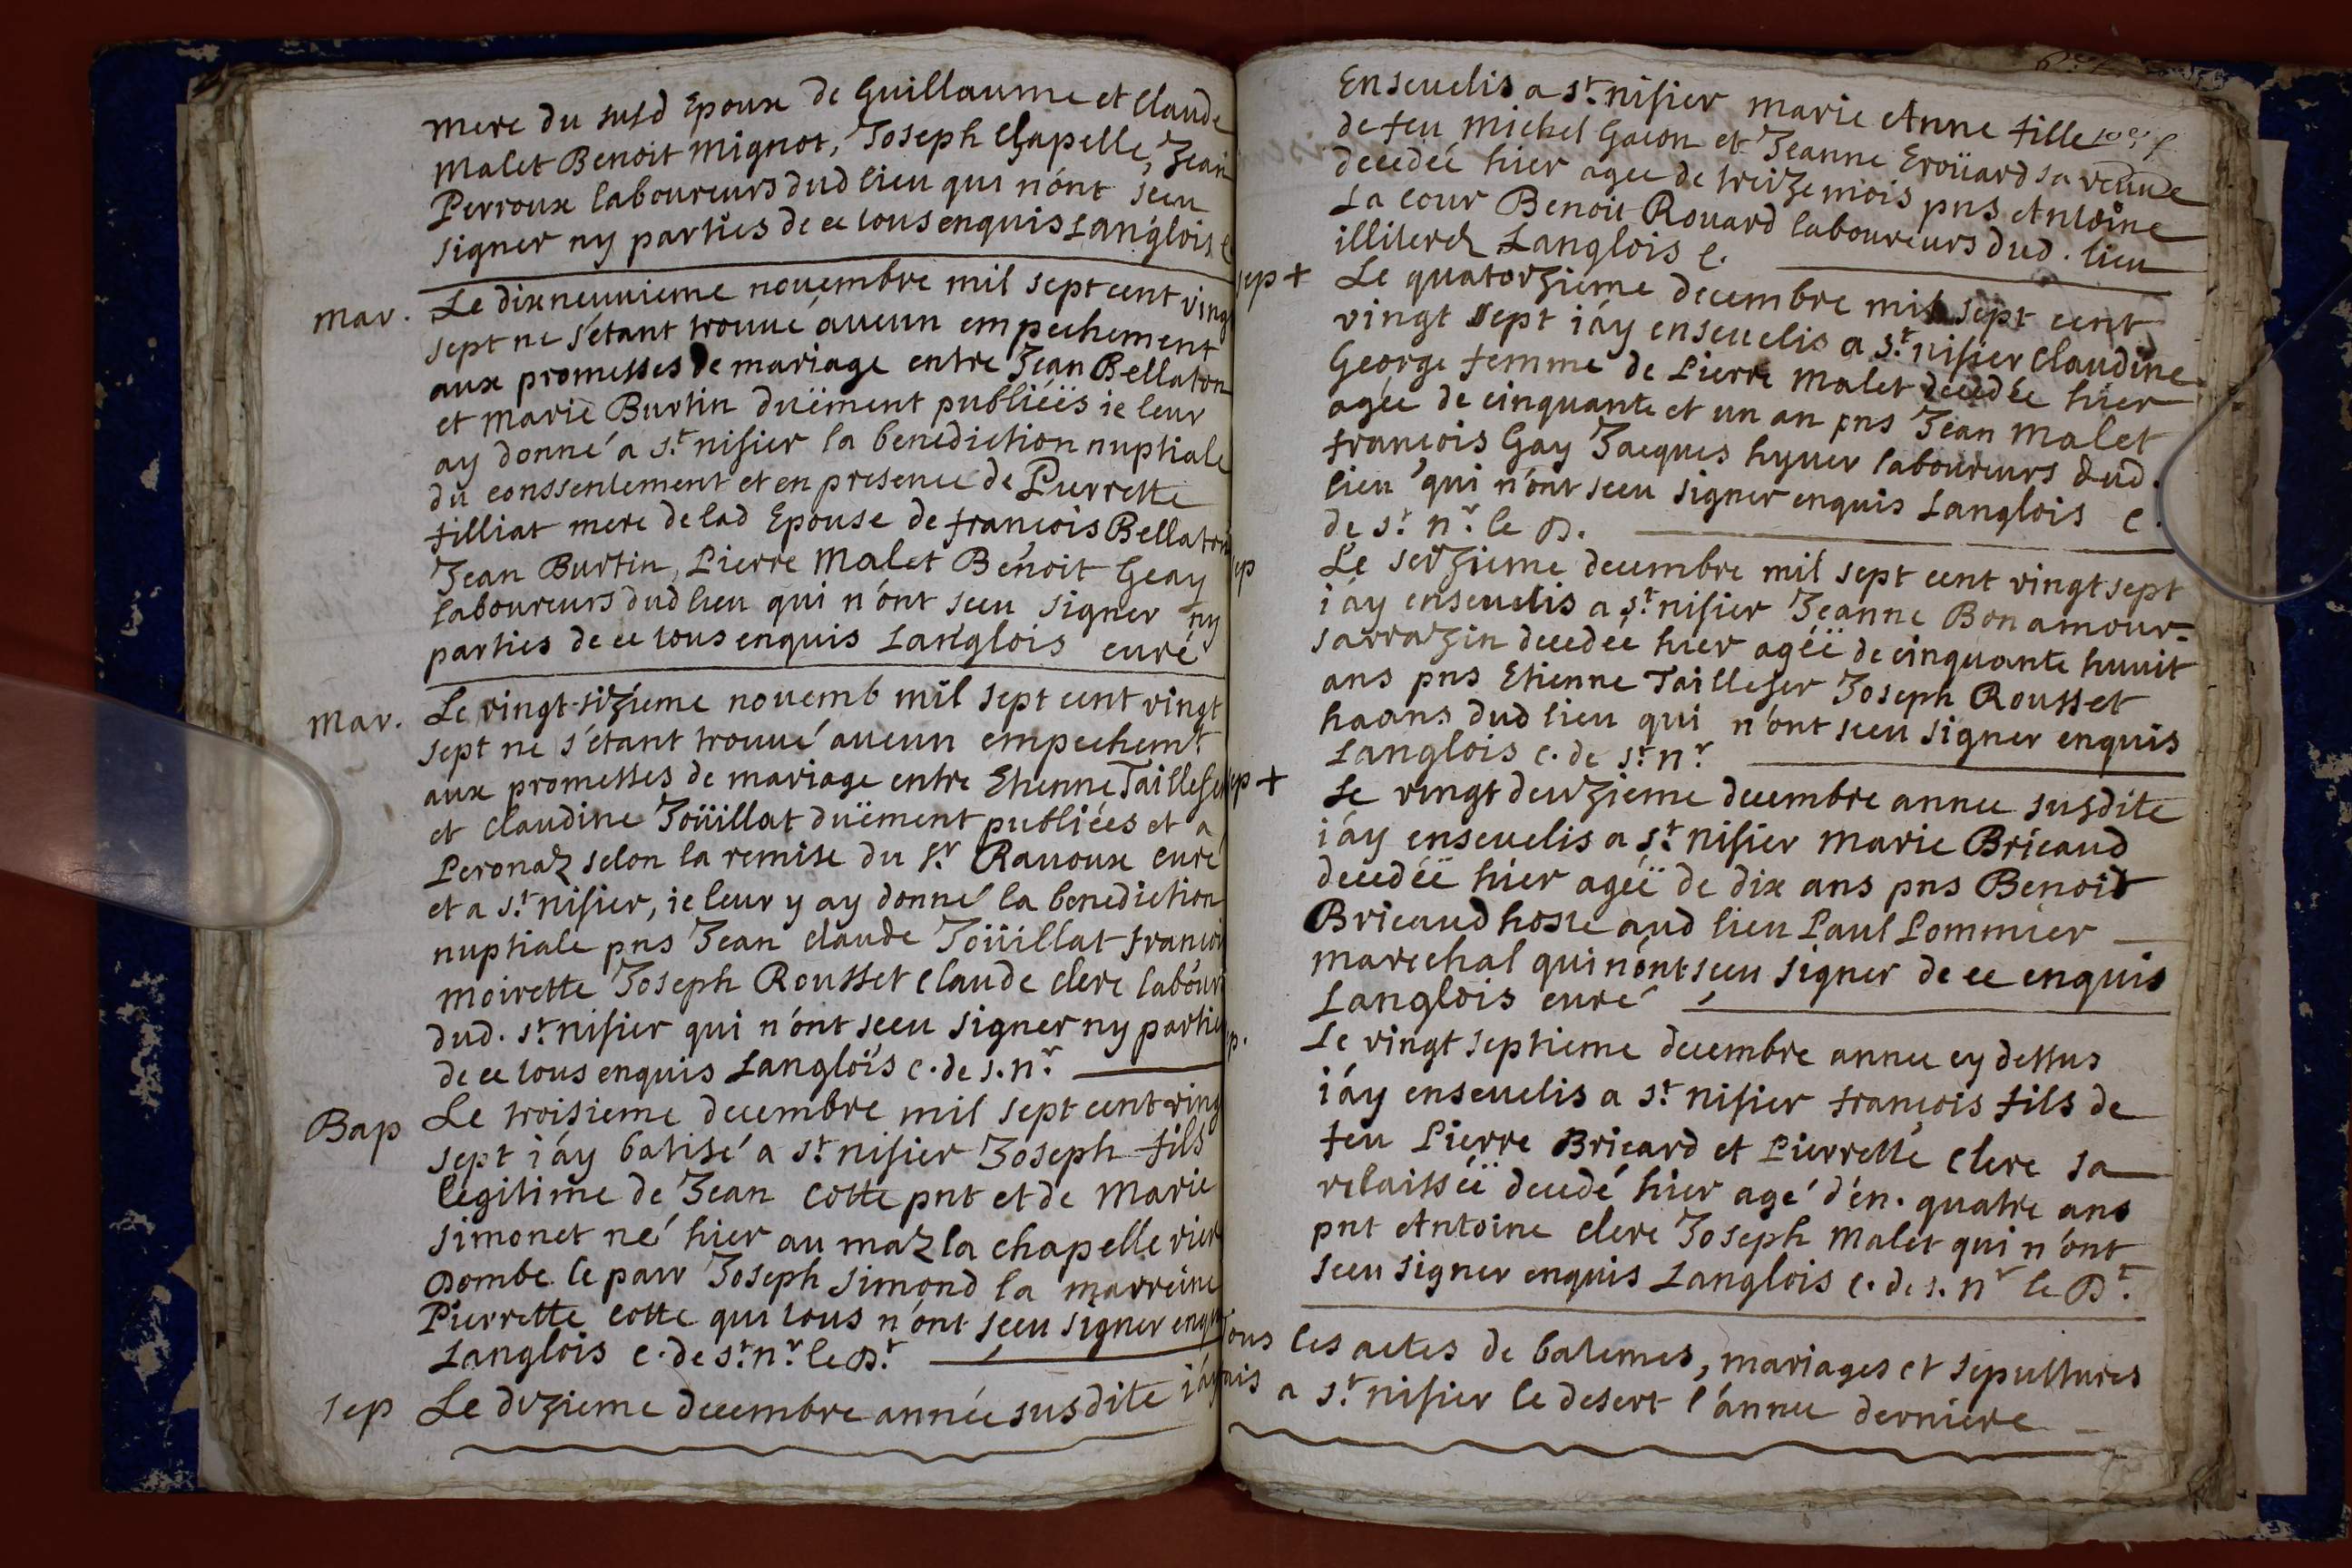 mere du susd Epoux de Guillaume et Claude
Malet Benoit Mignot, Joseph Chapelle, Jean
Perroux laboureurs dud lieu qui n'ont sceu
signer ny parties de ce tous enquis Langlois c
mar. Le dixneuvieme novembre mil sept cent ving
sept ne s'etant trouvé aucun empechement
aux promesses de mariage entre Jean Bellaton
et Marie Burtin duëment publiéës ie leur
ay donné a st nisier la benediction nuptiale
du conssentement et en presence de Pierrette
filliat mere de lad Epouse de francois Bellaton
Jean Burtin, Pierre Malet Benoit Geay
laboureurs dud lieu qui n'ont sceu signer ny
parties de ce tous enquis Langlois curé
mar. Le vingt-sizieme novemb mil sept cent vingt
sept ne s'etant trouvé aucun empechemt
aux promesses de mariage entre Etienne Taillefer
et Claudine Joüillat duëment publiées et a
Peronaz selon la remise du sr Ravoux curé
et a st nisier, ie leur y ay donné la benediction
nuptiale pns Jean Claude Joüillat francoi
moirette Joseph Rousset Claude Clerc labour
dud. st nisier qui n'ont sceu signer ny partie
de ce tous enquis Langlois c. de s. nr
Bap Le troisieme decembre mil sept cent ving
sept i'ay batisé a st nisier Joseph fils
legitime de Jean Cotte pnt et de Marie
Simonet né hier au maz la chapelle rier
Dombe le parr Joseph Simond la marreine
Pierrette Cotte qui tous n'ont sceu signer enqu
Langlois c. de st nr le Dt
sep Le dizieme decembre année susdite i'ay
Ensevelis a st nisier Marie Anne fille
de feu Michel Gacon et Jeanne Eroüard sa veuve
decedéé hier agee de treize mois pns Antoine
La cour Benoit Rouard laboureurs dud. lieu
illiterez Langlois c.
sep + Le quatorzieme decembre mil sept cent
vingt sept i'ay ensevelis a st nisier Claudine
George femme de Pierre Malet decedée hier
agée de cinquante et un an pns Jean Malet
francois Gay Jacques hyver laboureurs dud.
lieu qui n'ont sceu signer enquis Langlois c.
de st nr le D.
sep Le seizieme decembre mil sept cent vingt sept
i'ay ensevelis a st nisier Jeanne Bonamour-
sarrazin decedéé hier agéë de cinquante huuit
ans pns Etienne Taillefer Joseph Rousset
haans dud lieu qui n'ont sceu signer enquis
Langlois c. de st nr
sep + Le vingt deuzieme decembre annee susdite
i'ay ensevelis a st nisier Marie Bricaud
decedéë hier agéë de dix ans pns Benoit
Bricaud hoste aud lieu Paul Pommier
marechal qui n'ont sceu signer de ce enquis
Langlois curé
p. Le vingt septieme decembre annee cy dessus
i'ay ensevelis a st nisier francois fils de
feu Pierre Bricard et Pierrette Clerc sa
relaisséë decedé hier agé d'en. quatre ans
pnt Antoine Clerc Joseph Malet qui n'ont
sceu signer enquis Langlois c. de s. nr le Dt.
Tous les actes de batemes, mariages et sepultures
a st nisier le desert l'annee derniere